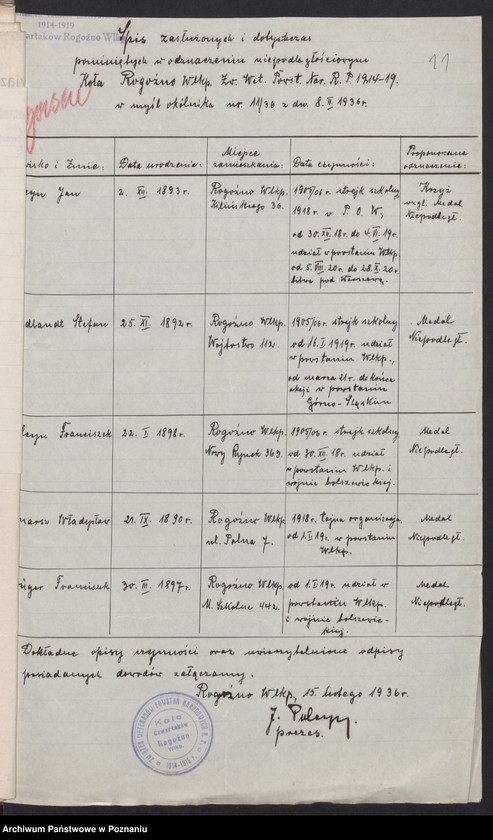 1914-1919
Rogoźno Wlkp.
Spis zasłużonych i dotychczas
pominiętych w odznaczeniu niepodległościowym
Koła Rogoźno Wlkp. Zw. Wet. Powst. Nar. R. P. 1914-19.
w myśl okólnika nr. 11/36 z dn. 8. II 1936r.
Imię:
Data urodzenia:
Miejsce zamieszkania:
Data czynności:
Proponowane odznaczenie:
Jan
2. XII. 1893r.
Rogoźno Wlkp.
Kilińskiego 36.
1905/06r. strejk szkolny
1918r. w P. O. W.,
od 30. XII. 18r. do 4. VI. 19r.
udział w powstaniu Wlkp.
od 5. VIII. 20r. do 28. X. 20r.
bitwa pod Warszawą.
Krzyż
wzgl. Medal
Niepodległ.
Stefan
25. XI. 1892r.
Rogoźno Wlkp.
Wójtostwo 112.
1905/06r. strejk szkolny
od 16. I. 1919r. udział
w powstaniu Wlkp.,
od marca 21r. do końca
akcji w powstaniu
Górno-Śląskim
Medal
Niepodległ.
Franciszek
22. I. 1898r.
Rogoźno Wlkp.
Nowy Rynek 363.
1905/06r. strejk szkolny
od 30. XII. 18r. udział
w powstaniu Wlkp. i
wojnie bolszewickiej.
Medal
Niepodległ.
Władysław
21. IX. 1890r.
Rogoźno Wlkp.
ul. Polna 7.
1918r. tajna organizacja,
od 1. I. 19r. w powstaniu
Wlkp.
Medal
Niepodległ.
Franciszek
30. III. 1897r.
Rogoźno Wlkp.
M. Szkolna 442.
od 1. I. 19r. udział w
powstaniu Wlkp.
i wojnie bolszewic-
kiej.
Medal
Niepodległ.
Dokładne opisy czynności oraz uwierzytelnione odpisy
posiadanych dowodów załączamy.
Rogoźno Wlkp., 15. lutego 1936r.
prezes.
Koło
Czwartaków
Rogoźno
Wlkp.
1914-1919 r.
Archiwum Państwowe w Poznaniu